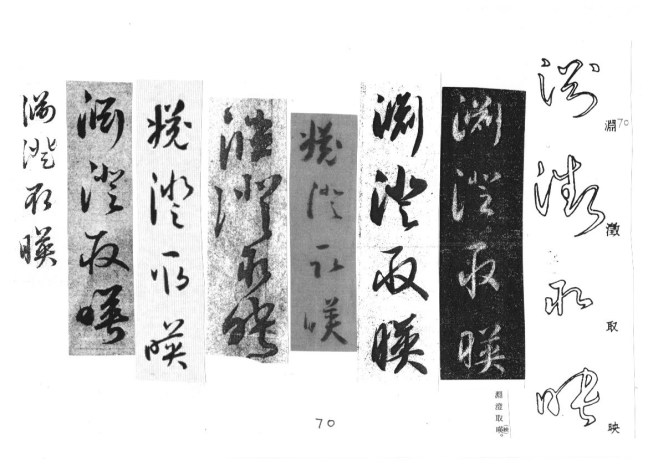 淵 澂 取 映
70
淵 澂 取 映
淵澄取暎
淵澄取暎
淵澄取暎
澄取暎
澄取映
澄取暎
淵澄取暎
淵澄取暎
70